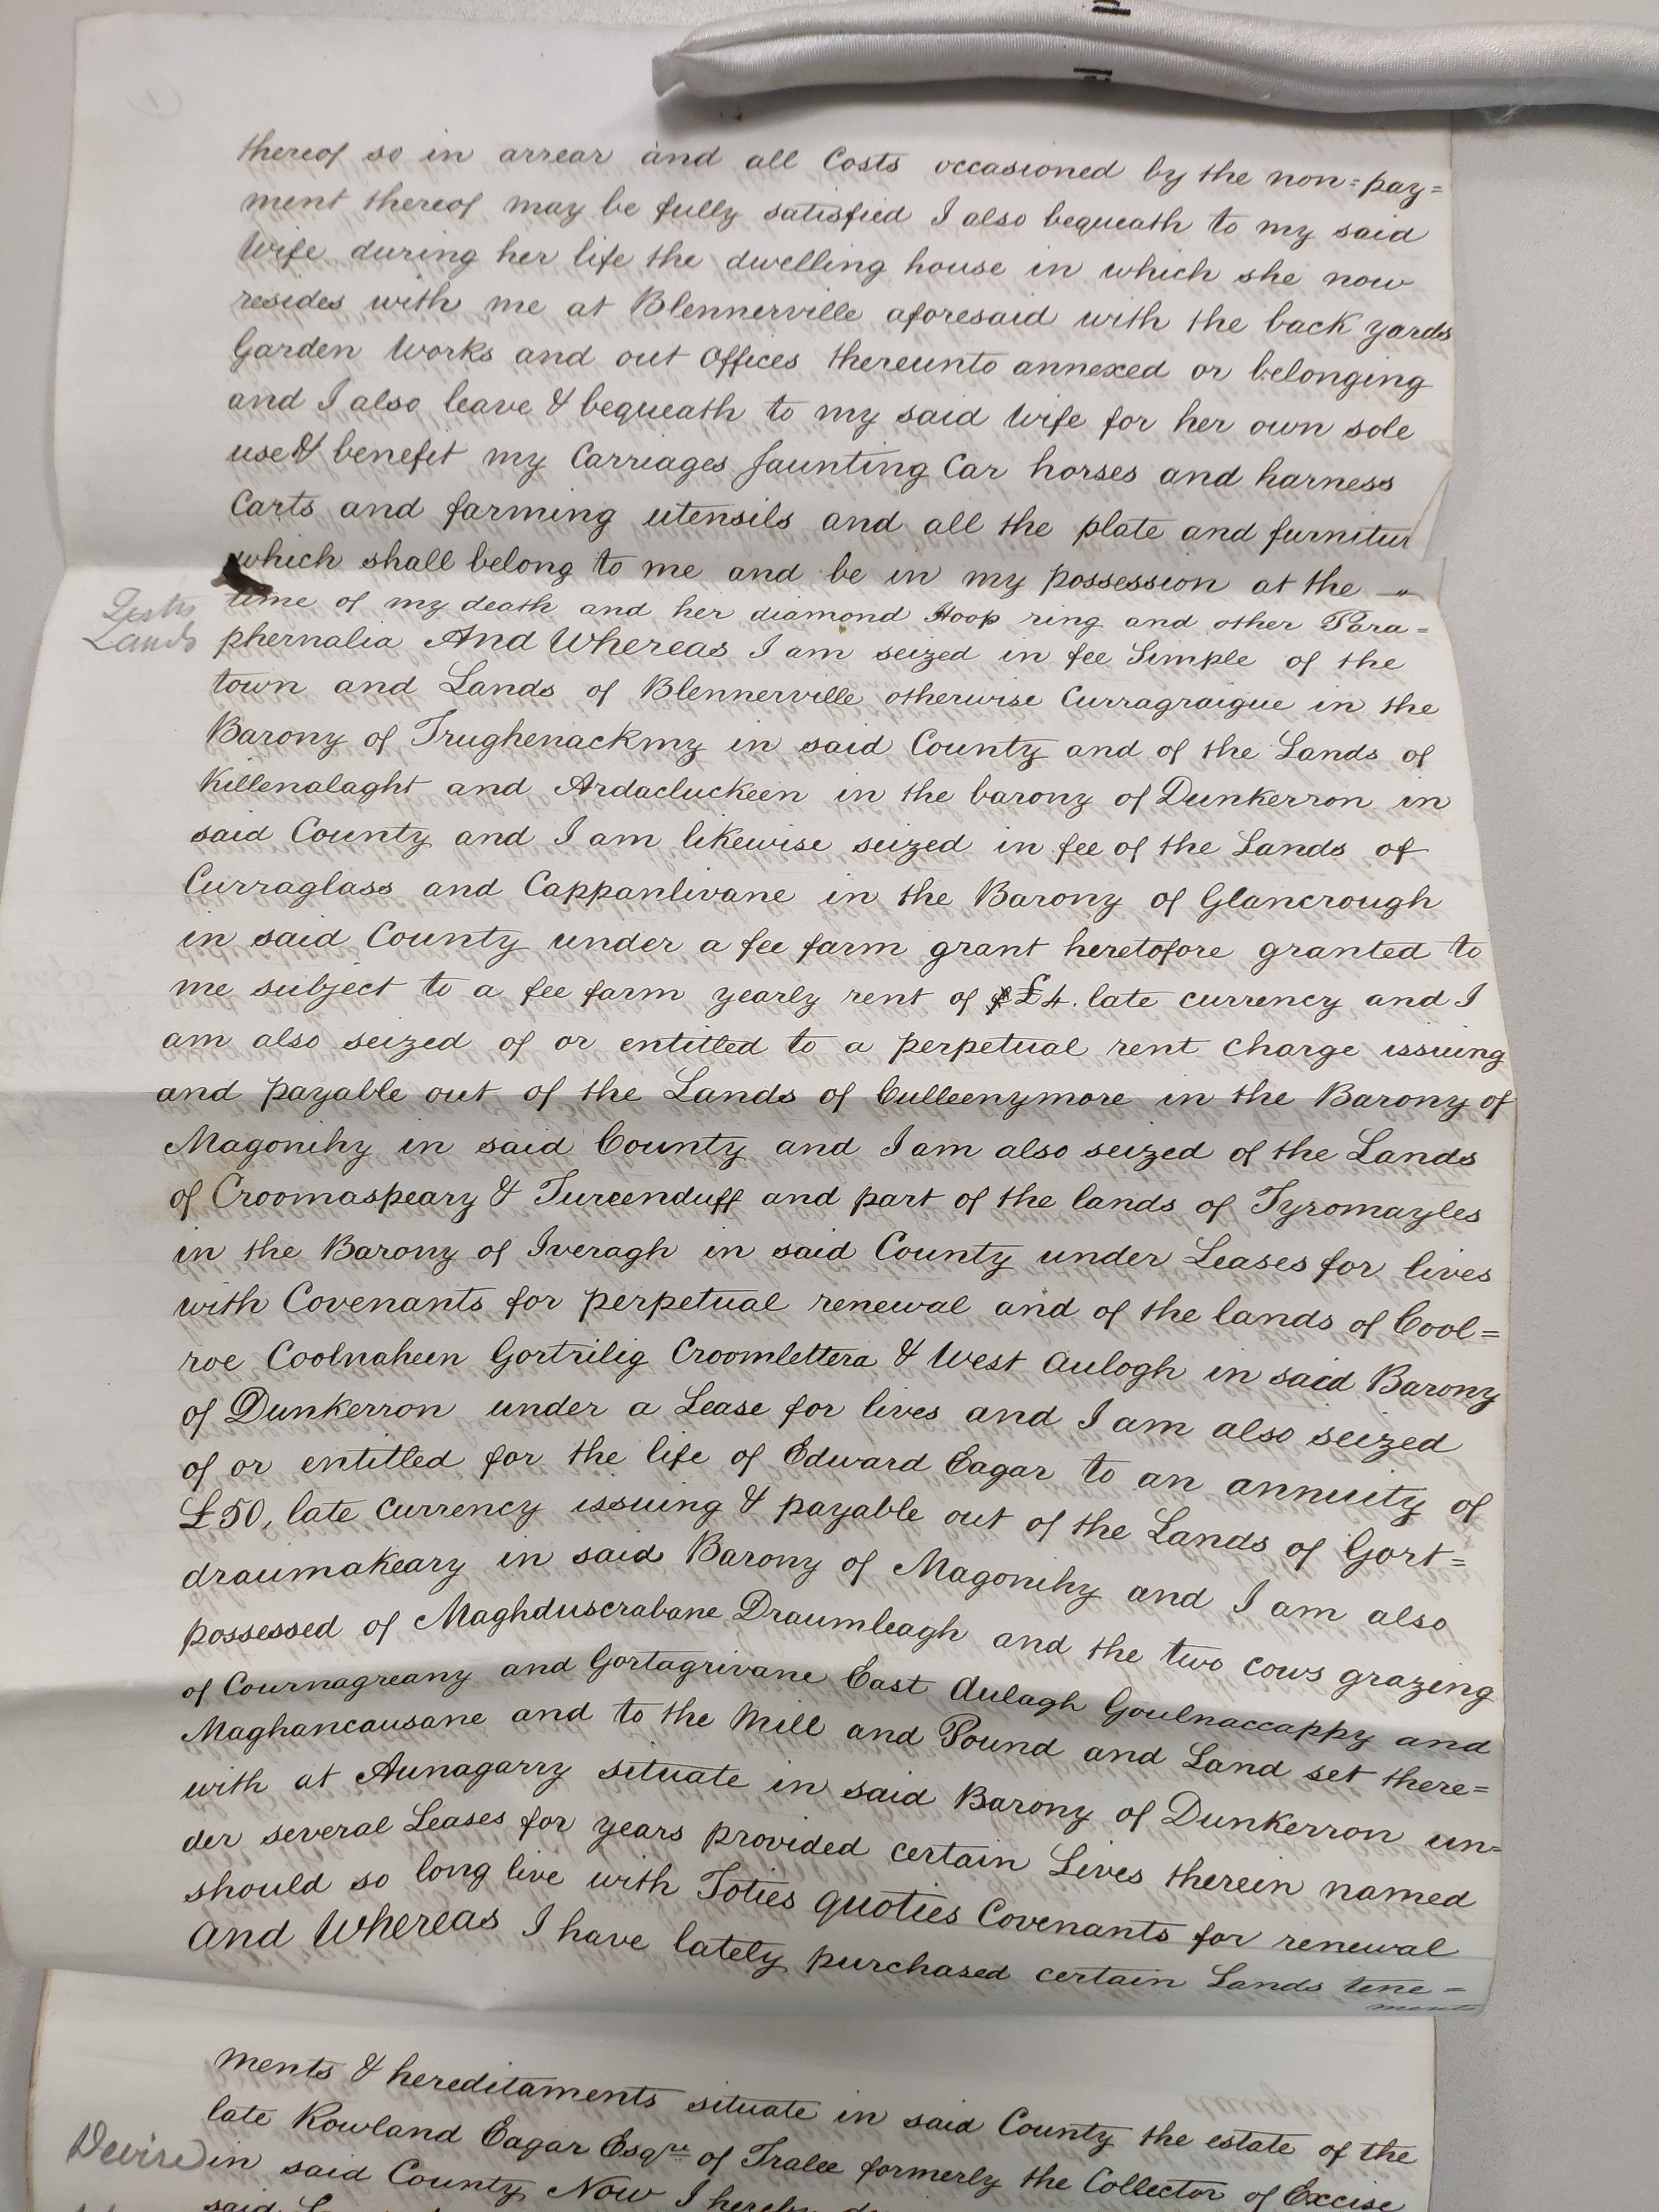 thereof so in arrear and all Costs occasioned by the non=pay=
ment thereof may be fully satisfied I also bequeath to my said
Wife during her life the dwelling house in which she now
resides with me at Blennerville aforesaid with the back yards
Garden Works and out Offices thereunto annexed or belonging
and I also leave & bequeath to my said Wife for her own sole
use & benefit my Carriages Jaunting Car horses and harness
Carts and farming utensils and all the plate and furnitur
which shall belong to me and be in my possession at the
time of my death and her diamond Hoop ring and other Para=
Lands
phernalia And Whereas I am seized in fee Simple of the
town and Lands of Blennerville otherwise Curragraigue in the
Barony of Trughenackmy in said County and of the Lands of
Killenalaght and Ardacluckeen in the barony of Dunkerron in
said County and I am likewise seized in fee of the Lands of
Curraglass and Cappanlivane in the Barony of Glancrough
in said County under a fee farm grant heretofore granted to
me subject to a fee farm yearly rent of £4. late currency and I
am also seized of or entitled to a perpetual rent charge issuing
and payable out of the Lands of Culleenymore in the Barony of
Magonihy in said County and I am also seized of the Lands
of Croomaspeary & Tureenduff and part of the lands of Tyromayles
in the Barony of Iveragh in said County under Leases for lives
with Covenants for perpetual renewal and of the lands of Cool=
roe Coolnaheen Gortrilig Croomlettera & West Aulogh in said Barony
of Dunkerron under a Lease for lives and I am also seized
of or entitled for the life of Edward Eagar to an annuity of
£50, late currency issuing & payable out of the Lands of Gort=
draumakeary in said Barony of Magonihy and I am also
possessed of Maghduscrabane Draumleagh and the two cows grazing
of Cournagreany and Gortagrivane East Aulagh Goulnaccappy and
Maghancausane and to the Mill and Pound and Land set there=
with at Aunagarry situate in said Barony of Dunkerron un=
der several Leases for years provided certain Lives therein named
should so long live with Toties quoties Covenants for renewal
And Whereas I have lately purchased certain Lands tene=
ments
ments & hereditaments situate in said County the estate of the
late Rowland Eagar Esqre of Tralee formerly the Collector of Excise
Devise
in said County Now I hereby
said